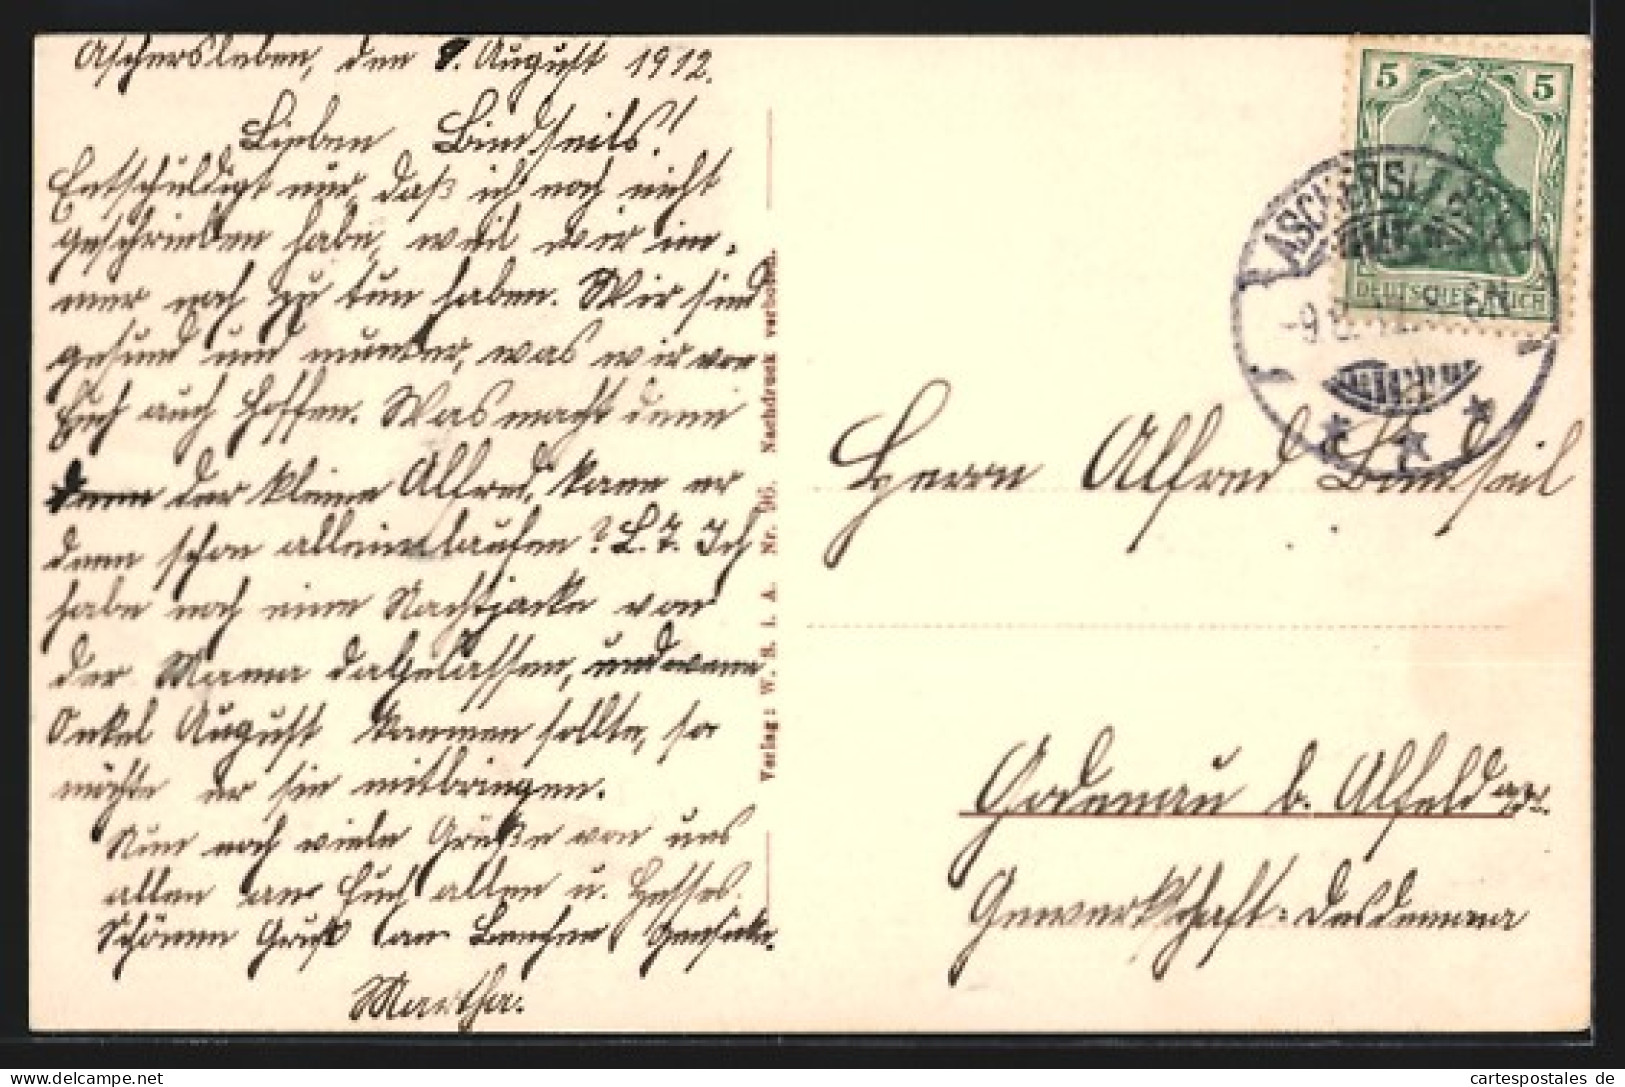 Aschersleben, den 8. August 1912.
Lieben Bindseils!
Entschuldigt nur, daß ich noch nicht
geschrieben habe, weil wir im-
mer noch zu tun haben. Wir sind
gesund und munter, was wir von
Euch auch hoffen. Was macht denn
denn der kleine Alfred, kann er
denn schon allein laufen? L. T. Ich
habe noch eine Nachtjacke von
der Mama dagelassen, und wenn
Onkel August kommen sollte, so
möchte er sie mitbringen.
Nun noch viele Grüße von uns
allen an Euch allen u. Hesses.
Schönen Gruß an Lenchen
Martha.
Verlag: W. S. i. A. Nr. 96. Nachdruck verboten.
5 5
DEUTSCHES REICH
ASCHERSLEBEN
Herrn Alfred Bindseil
Godenau b. Alfeld
Gewerkschaft: Desdemona
cartespostales de